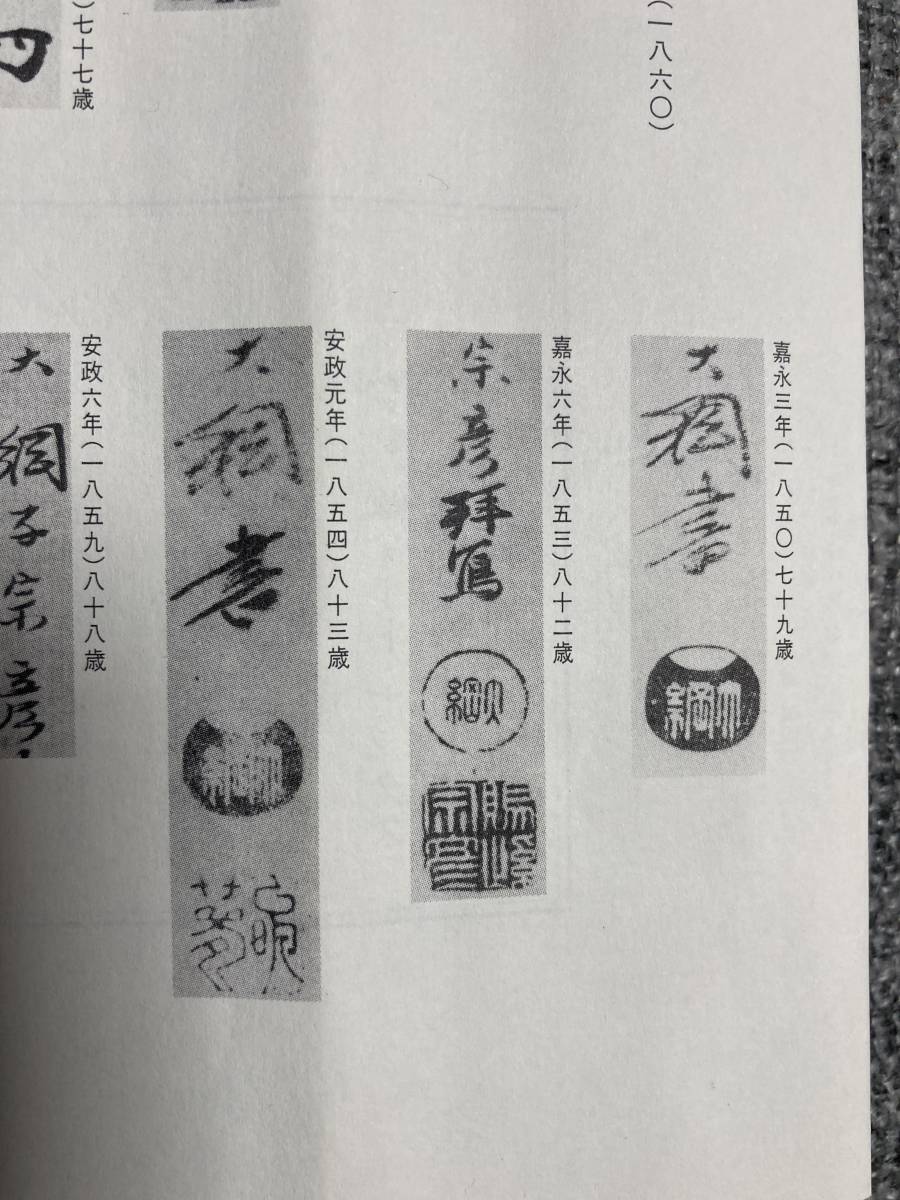 (一八六〇)
)七十七歳
嘉永三年(一八五〇)七十九歳
大綱書
大綱
嘉永六年(一八五三)八十二歳
宗彦拜寫
大綱
宗彦
安政元年(一八五四)八十三歳
大綱書
大綱
安政六年(一八五九)八十八歳
大綱子宗彦